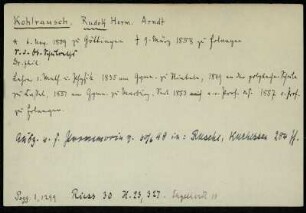 Kohlrausch, Rudolf Herm. Arndt
* 6. Nov. 1809 zu Göttingen † 9. März 1858 zu Erlangen
Dr. phil
Lehrer d. Math. u. Physik 1833 am Gymn. zu Rinteln, 1849 an der polytechn. Schule
zu Cassel, 1851 am Gymn. zu Marburg. Seit 1853 auch a.o. Prof. 1857 o. Prof.
zu Erlangen.
in: Kurhessen 284 ff.
Pogg. 1, 1299 Riess 30 H. 23, 327.